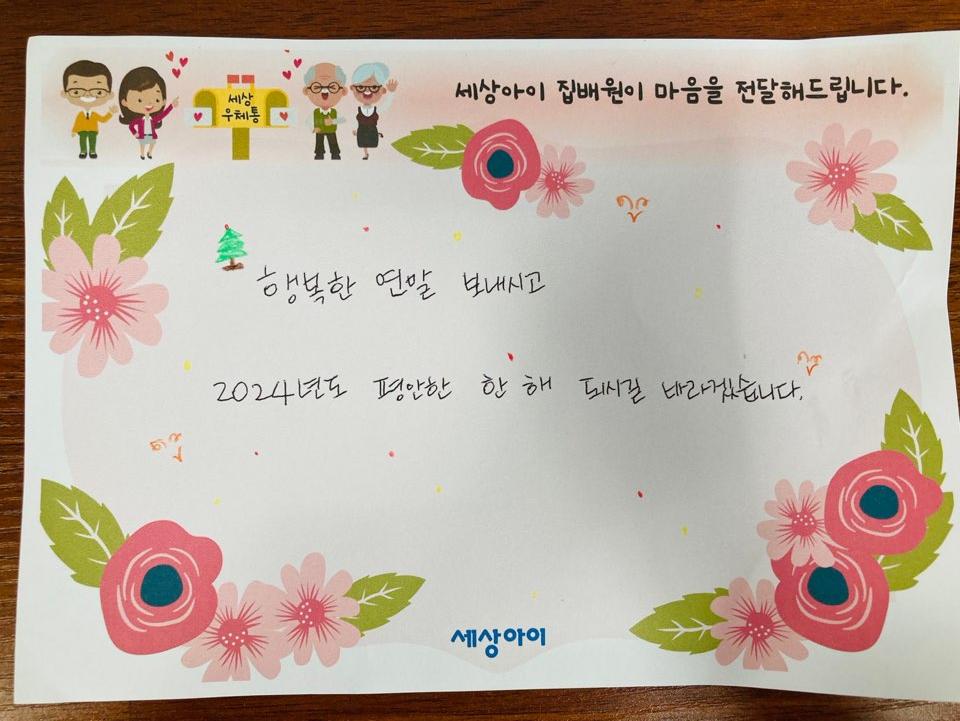 세상아이 집배원이 마음을 전달해드립니다.
세상
우체통
행복한 연말 보내시고
2024년도 평안한 한 해 되시길 바라겠습니다.
세상아이